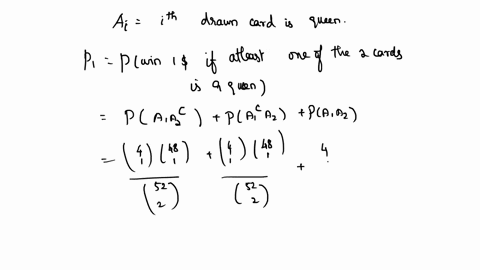 Ai = ith drawn card is queen.
P1 = P(win 1$ if atleast one of the 2 cards
is a queen)
= P(A1A2^C) + P(A1^C A2) + P(A1A2)
= (4 1)(48 1)/(52 2) + (4 1)(48 1)/(52 2) + 4